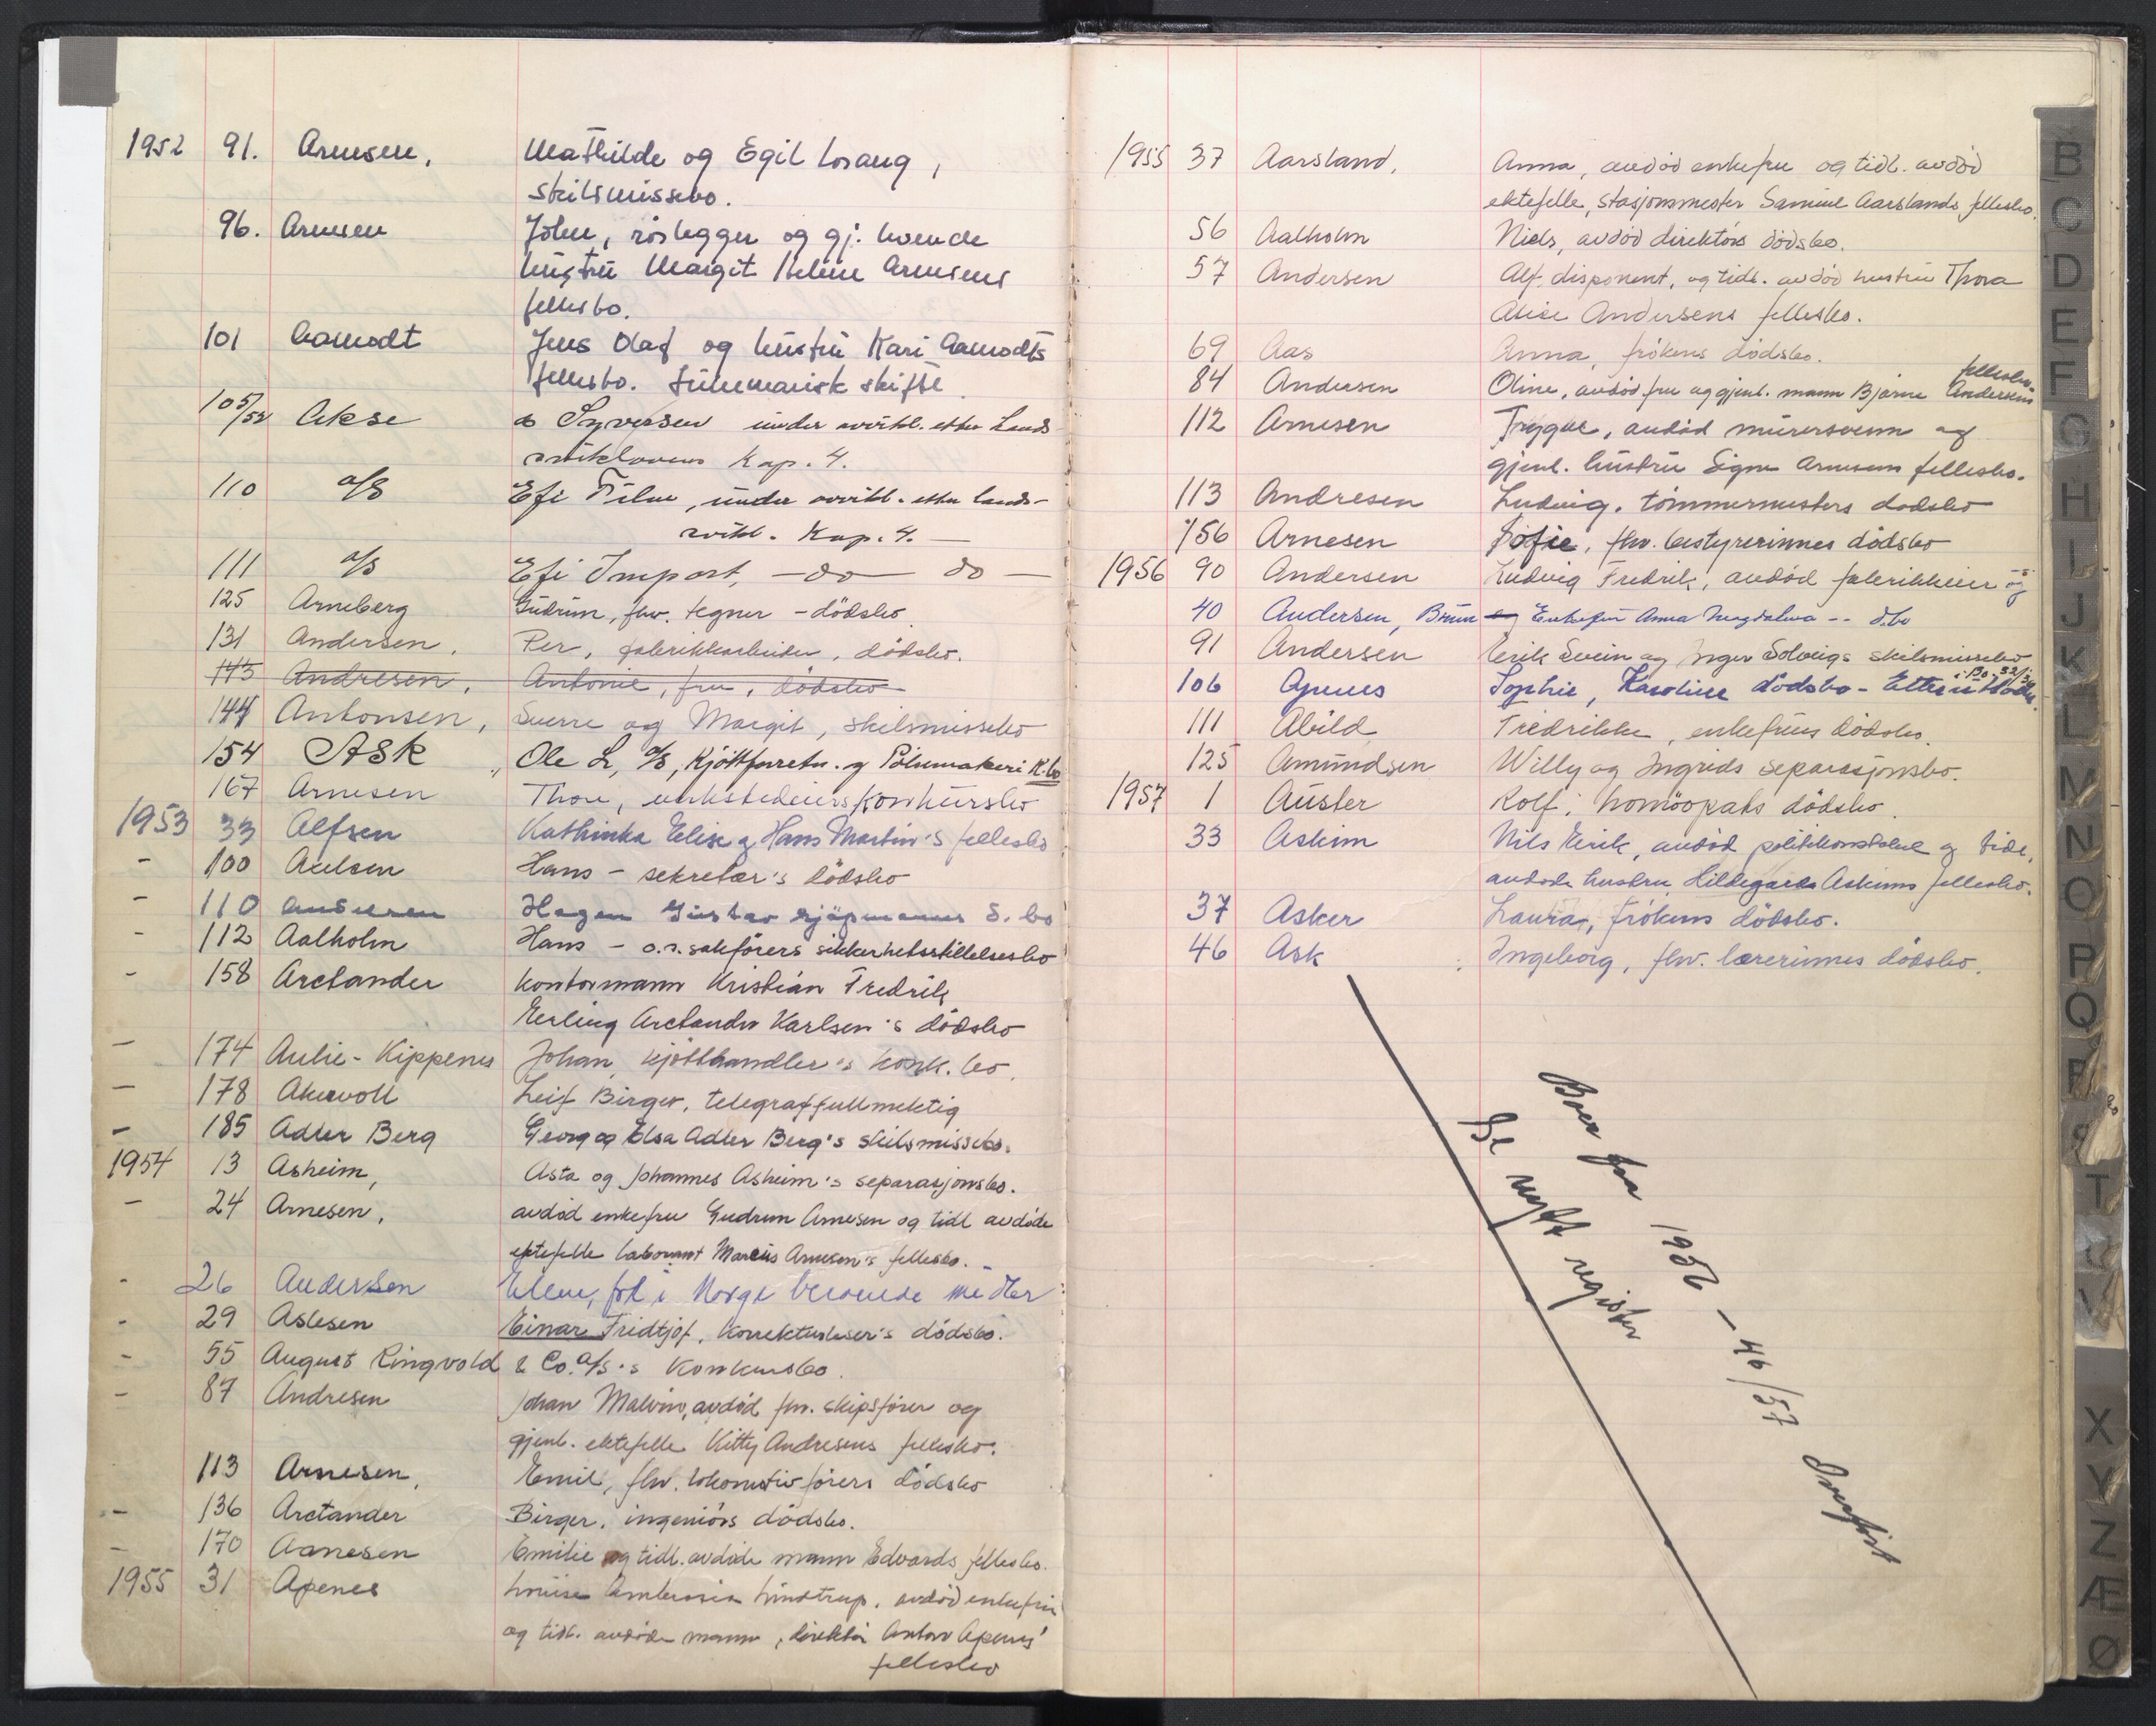 1952 91. Arnesen, Mathilde og Egil Lorang,
skilsmissebo.
96. Arnesen John, rørlegger og gj. levende
hustru Margit Helene Arnesens
fellesbo.
101 Aamodt Jens Olaf og hustru Kari Aamodts
fellesbo. Summarisk skifte
105/52 Akse & Syversen under avvikl. etter Lands-
sviklovens Kap. 4.
110 A/S Efi Film, under avvikl. etter lands-
svikl. Kap. 4. —
111 A/S Efi Import, — do — do —
125 Arneberg Gudrun, fhv. tegner - dödsbo.
131 Andersen, Per, fabrikkarbeider, dödsbo.
143 Andresen, Antonie, fru, dödsbo
144 Antonsen, Sverre og Margit, skilsmissebo
154 ASK Ole L, A/S, Kjöttforretn. og Pölsemakeri K.bo
167 Arnesen Thore, verkstedeiers konkursbo
1953 33 Alfsen Kathinka Elise og Hans Martin's fellesbo
- 100 Aulsen Hans - sekretær's dödsbo
- 110 Andersen Hagen Gustav kjöpmanns d. bo
- 112 Aalholm Hans - o.r. sakförers sikkerhetsstillelsesbo
- 158 Arctander kontormann Kristian Fredrik
Erling Arctander Karlsen's dödsbo
- 174 Aulie-Kippenes Johan, kjötthandler's konk. bo.
- 178 Akervoll Leif Birger, telegraffullmektig
- 185 Adler Berg Georg og Elsa Adler Berg's skilsmissebo.
1954 13 Asheim, Asta og Johannes Asheim's separasjonsbo.
- 24 Arnesen, avdöd enkefru Gudrun Arnesen og tidl avdöde
ektefelle laborant Marius Arnesen's fellesbo.
- 26 Andersen Elen, for i Norge beroende midler
- 29 Aslesen Einar Fridtjof, korrekturleser's dödsbo.
- 55 August Ringvold & Co. A/S's Konkursbo.
- 87 Andresen Johan Malvin, avdöd fhv. skipsförer og
gjenl. ektefelle Kitty Andresens fellesbo.
113 Arnesen, Emil, fhv. lokomotivförers dödsbo
- 136 Arctander Birger, ingeniörs dödsbo.
- 170 Aanesen Emilie og tidl. avdöde mann Edvards fellesbo.
1955 31 Apenes Louise Ambrosia Lindtrup, avdöd enkefru
og tidl. avdöde mann, direktör Anton Apenes'
fellesbo
1955 37 Aarsland, Anna, avdöd enkefru og tidl. avdöd
ektefelle, stasjonsmester Samuel Aarslands fellesbo.
56 Aalholm Niels, avdöd direktörs dödsbo.
57 Andersen Alf, disponent, og tidl. avdöd hustru Thora
Alise Andersens fellesbo.
69 Aas Anna, frökens dödsbo.
84 Andersen Oline, avdöd fru og gjenl. mann Bjarne Andersens fellesbo.
112 Arnesen Trygve, avdöd murersvenn og
gjenl. hustru Signe Arnesens fellesbo.
113 Andresen Ludvig, tömmermesters dödsbo
156 Arnesen Sofie, fhv. bestyrerinnes dödsbo
1956 90 Andersen Ludvig Fredrik, avdöd fabrikkeier og
40 Andersen, Bruun Enkefru Anna Magdalena -- d.bo
91 Andersen Erik Svein og Inger Solveigs skilsmissebo
106 Apenes Sophie, Karoline dödsbo -
111 Abild Fredrikke, enkefrus dödsbo.
125 Amundsen Willy og Ingrids separasjonsbo.
1957 1 Auster Rolf, homöopats dödsbo.
33 Askim Nils Eirik, avdöd politikonstabel og tidl.
avdöde hustru Hildegards Askims fellesbo.
37 Asker Laura, frökens dödsbo.
46 Ask Ingeborg, fhv. lærerinnes dödsbo.
Boer fra 1956 - 46/57 Overfört
Se nytt register
B
C
D
E
F
G
H
I
J
K
L
M
N
O
P
Q
R
S
T
U
V
X
Y
Z
Æ
Ø